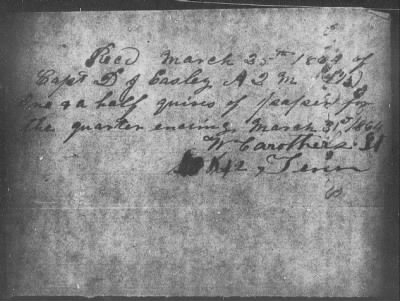 Recd March 25th 1864 of
Capt D J Easley A Q M
One & a half quires of paper for
the quarter ending March 31st 1864
W Carothers
42, Tenn